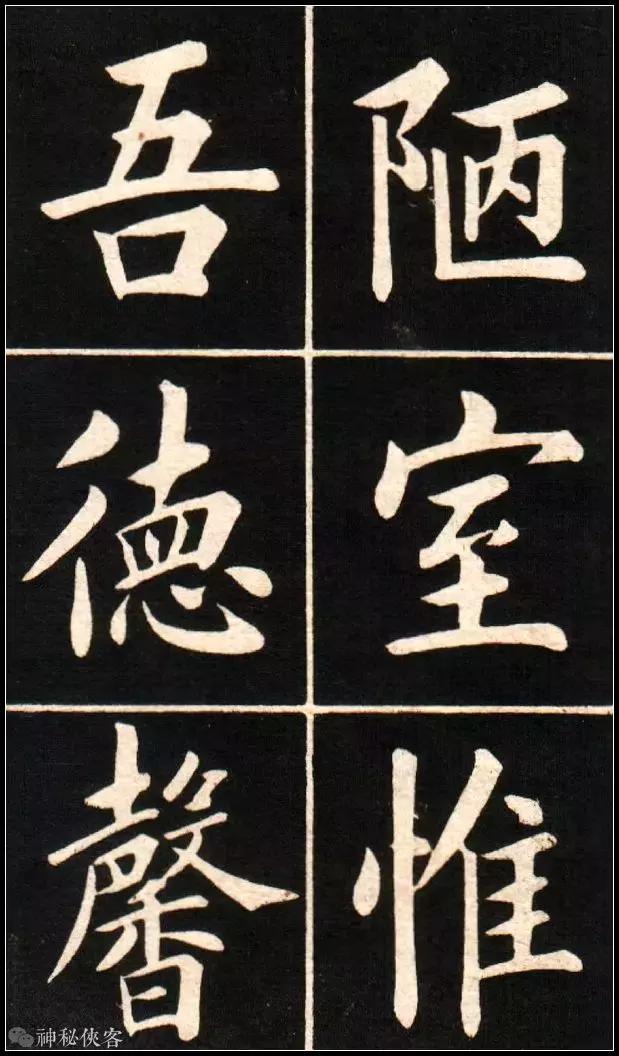 陋室惟
吾德馨
神秘侠客